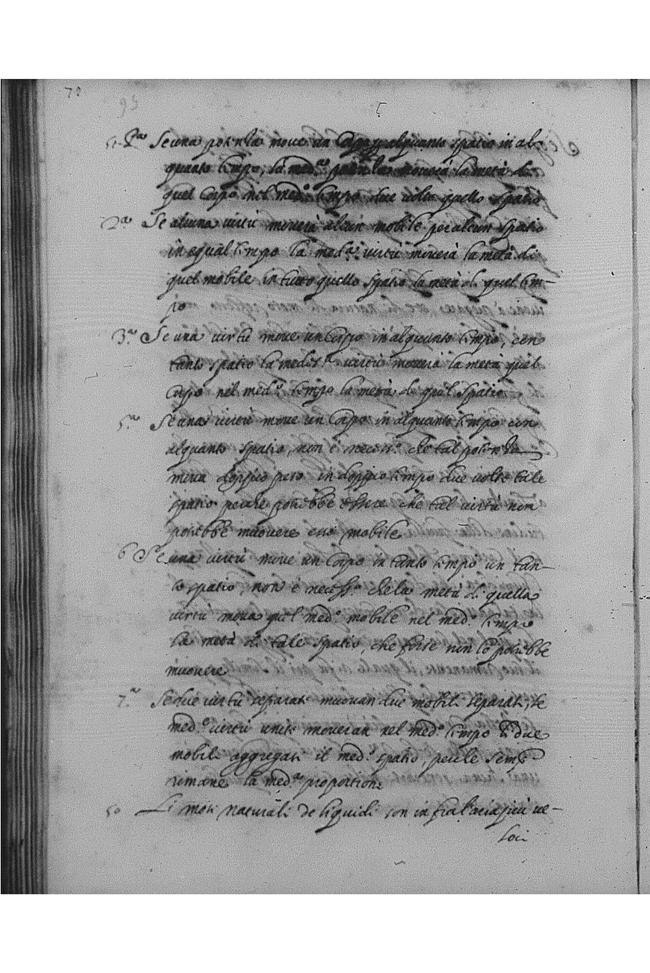 70
1.ª Se una potentia move un corpo alquanto spatio in al-
quanto tempo, la med.ª potentia moverà la metà di
quel corpo nel med.º tempo due volte quello spatio
2.ª Se alcuna virtù moverà alcun mobile per alcun spatio
in equal tempo la med.ª virtù moverà la metà di
quel mobile in tutto quello spatio la metà di quel tem-
po
3.ª Se una virtù move un corpo in alquanto tempo, con
tanto spatio la med.ª virtù moverà la metà quel
corpo nel med.º tempo la metà di quel spatio
5.ª Se una virtù move un corpo in alquanto tempo con
alquanto spatio, non è necess.º che tal potentia
mova doppio peso in doppio tempo due volte tale
spatio perche potrebbe essere che tal virtù non
potrebbe muovere esso mobile
6 Se una virtù move un corpo in tanto tempo un tan-
to spatio, non è necess.º che la metà di quella
virtù mova quel med.º mobile nel med.º tempo
la metà di tale spatio, che forse non lo potrebbe
muovere
7.ª Se due virtù separate muovan due mobili separati, le
med.e virtù unite moveran nel med.º tempo li due
mobili aggregati il med.º spatio, perche sempre
rimane la med.ª proportione
50 Li moti naturali de liquidi son infra l'aria più ve-
loci